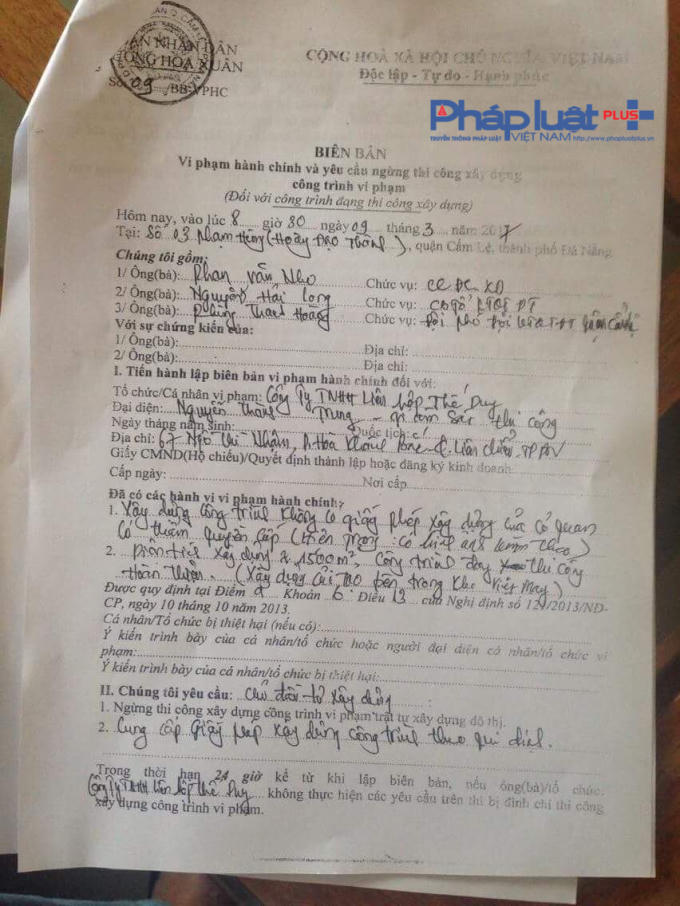 ÂN NHÂN DÂN
ƯỜNG HOÀ XUÂN
Số: 09 /BB-VPHC
CỘNG HOÀ XÃ HỘI CHỦ NGHĨA VIỆT NAM
Độc lập - Tự do - Hạnh phúc
Pháp luật PLUS
TRUYỀN THÔNG PHÁP LUẬT VIỆT NAM http://www.phapluatplus.vn
BIÊN BẢN
Vi phạm hành chính và yêu cầu ngừng thi công xây dựng
công trình vi phạm
(Đối với công trình đang thi công xây dựng)
Hôm nay, vào lúc 8 giờ 30 ngày 09 tháng 3 năm 2017
Tại: Số 03 (Hoàng Đạo Thành), quận Cẩm Lệ, thành phố Đà Nẵng
Chúng tôi gồm:
1/ Ông(bà): Phan Văn Nho Chức vụ: CC ĐC-XD
2/ Ông(bà): Nguyễn Hải Long Chức vụ: CB
3/ Ông(bà): Phùng Thanh Hoàng Chức vụ: Đội phó Đội KTQTĐT quận Cẩm Lệ
Với sự chứng kiến của:
1/ Ông(bà): Địa chỉ:
2/ Ông(bà): Địa chỉ:
I. Tiến hành lập biên bản vi phạm hành chính đối với:
Tổ chức/Cá nhân vi phạm: Công Ty TNHH Liên hợp Thế Duy
Đại diện: Nguyễn Thành Trung - giám sát thi công
Ngày tháng năm sinh: Quốc tịch:
Địa chỉ: 67 Ngô Thì Nhậm, P. Hoà Khánh Q. Liên Chiểu, TP ĐN
Giấy CMND(Hộ chiếu)/Quyết định thành lập hoặc đăng ký kinh doanh
Cấp ngày: Nơi cấp
Đã có các hành vi vi phạm hành chính:
1. Xây dựng công trình không có giấy phép xây dựng của cơ quan
có thẩm quyền cấp (hiện trạng: có hình ảnh kèm theo)
2. Diện tích xây dựng 1500m², Công trình đang thi công
Hoàn thiện. (Xây dựng cải tạo bên trong khu Việt May)
Được quy định tại Điểm a Khoản 6 Điều 13 của Nghị định số 121/2013/NĐ-
CP, ngày 10 tháng 10 năm 2013.
Cá nhân/Tổ chức bị thiệt hại (nếu có):
Ý kiến trình bày của cá nhân/tổ chức hoặc người đại diện cá nhân/tổ chức vi
phạm:
Ý kiến trình bày của cá nhân/tổ chức bị thiệt hại:
II. Chúng tôi yêu cầu: Chủ đầu tư xây dựng :
1. Ngừng thi công xây dựng công trình vi phạm trật tự xây dựng đô thị.
2. Cung cấp Giấy phép xây dựng công trình theo qui định.
Trong thời hạn 24 giờ kể từ khi lập biên bản, nếu ông(bà)/tổ chức:
Công Ty TNHH Liên hợp Thế Duy không thực hiện các yêu cầu trên thì bị đình chỉ thi công
xây dựng công trình vi phạm.